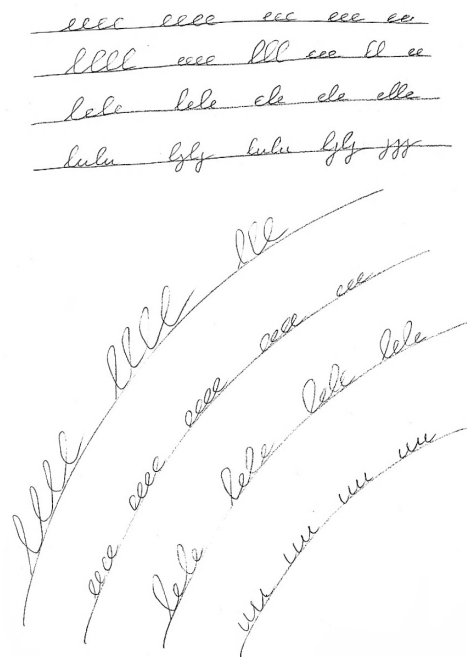 eeee eeee eee eee ee
llll eee lll eee ll ee
lele lele ele ele elle
lulu lyly lulu lyly yyy
llll llll lll
eeee eeee eeee eeee eee
lele lele lele lele
uu uu uu uu